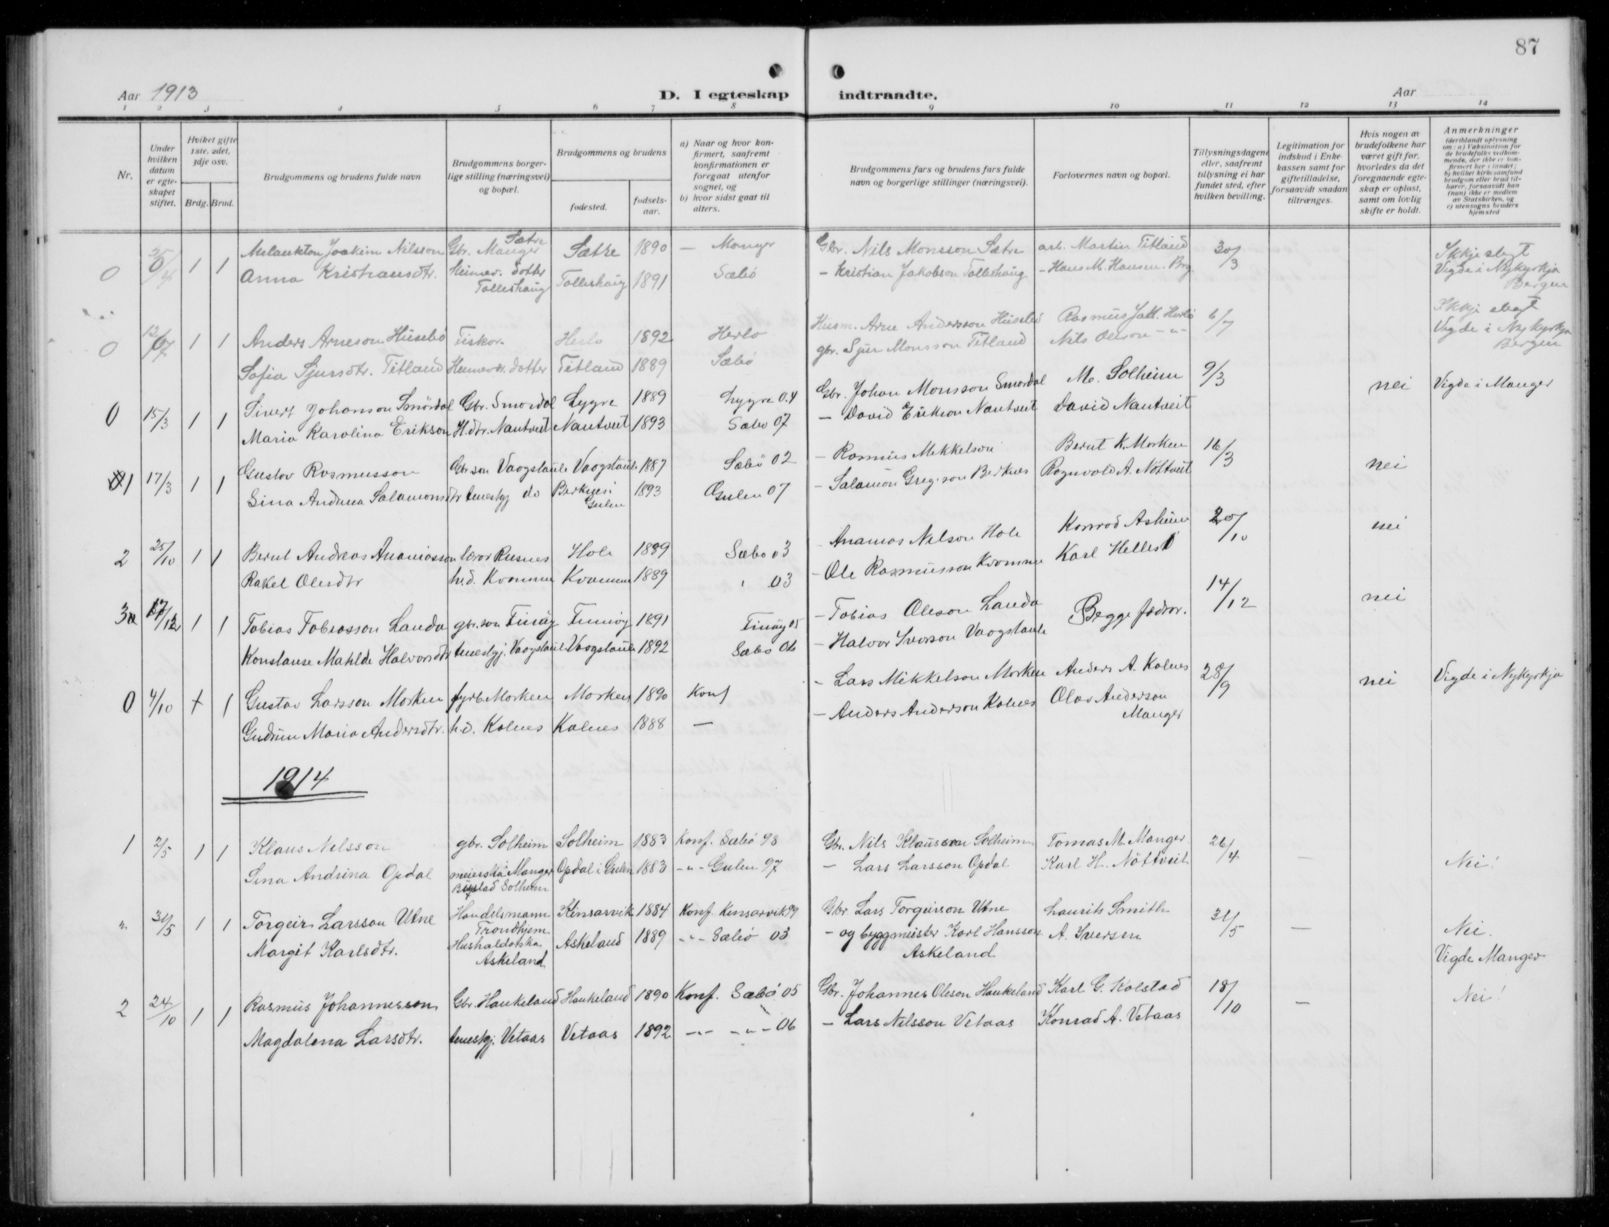 87
Aar 1913
D. I egteskap indtraadte.
Aar
1 2 3 4 5 6 7 8 9 10 11 12 13 14
Nr.
Under hvilken datum er egteskapet stiftet.
Hvilket gifte 1ste, 2det, 3dje osv.
Brdg. Brud.
Brudgommens og brudens fulde navn
Brudgommens borgerlige stilling (næringsvei) og bopæl.
Brudgommens og brudens
fødested.
fødselsaar.
a) Naar og hvor konfirmert, saafremt konfirmationen er foregaat utenfor sognet, og
b) hvor sidst gaat til alters.
Brudgommens fars og brudens fars fulde navn og borgerlige stillinger (næringsvei).
Forlovernes navn og bopæl.
Tillysningsdagene eller, saafremt tillysning ei har fundet sted, efter hvilken bevilling.
Legitimation for indskud i Enkekassen samt for giftetilladelse, forsaavidt saadan tiltrænges.
Hvis nogen av brudefolkene har været gift før, hvorledes da det foregaaende egteskap er opløst, samt om lovlig skifte er holdt.
Anmerkninger
0 1 1 Melankton Joakim Nilsson Gbr. Manger Sætre Sætre 1890 — Manger Gbr. Nils Monsson Sætre arb. Martin Titland 30/3 Ikkje slegt
Anna Kristiansdtr. Heimev. dotter Tolleshaug Tolleshaug 1891 Sæbø — Kristian Jakobson Tolleshaug — Hans M. Hansen Brg Vigde i Nykyrkja Bergen
0 1 1 Anders Arneson Husebø Fiskar Herlo 1892 Herlo Husm. Arne Andersson Husebø Rasmus 6/7 Ikkje slegt
Sofia Sjursdtr. Titland Heimev. dotter Titland 1889 Sæbø gbr. Sjur Monsson Titland Nils Olsson -"- Vigde i Nykyrkja Bergen
0 15/3 1 1 Sivert Johanson Smørdal Gbr. Smørdal Lygre 1889 Lygre 04 Gbr. Johan Monsson Smørdal M. Solheim 9/3 nei Vigde i Manger
Maria Karolina Erikson H.dtr. Nautveit Nautveit 1893 Sæbø 07 — David Erikson Nautveit David Nautveit
1 17/3 1 1 Gustav Rasmusson Gbr.son Vaagstaule Vaagstaule 1887 Sæbø 02 — Rasmus Mikkelson Bernt K. Morken 16/3 nei
Sina Andrea Salamonsdtr tenestgj do Berknes i Gulen 1893 Gulen 07 — Salamon Gregerson Berknes Ragnvald A. Nøttveit
2 25/10 1 1 Bernt Andreas Ananiasson lærar Risnes Hole 1889 Sæbø 03 — Ananias Nilson Hole Konrad Askeim 20/10 nei
Rakel Olesdtr h.d. Kvamme Kvamme 1889 " 03 — Ole Rasmusson Kvamme Karl Helles
3 17/12 1 1 Tobias Tobiasson Landa gbr.son Finnøy Finnøy 1891 Finnøy 05 — Tobias Oleson Landa Begge fedrar. 14/12 nei
Konstanse Matilde Halvorsdtr tenestgj. Vaagstaule Vaagstaule 1892 Sæbø 06 — Halvor Iverson Vaagstaule
0 4/10 1 1 Gustav Larsson Morken fyrb. Morken Morken 1890 Konf — Lars Mikkelson Morken Anders A. Kalnes 28/9 nei Vigde i Nykyrkja
Gudrun Maria Andersdtr. h.d. Kalnes Kalnes 1888 — — Anders Anderson Kalnes Olav Anderson Manger
1914
1 2/5 1 1 Klaus Nilsson gbr. Solheim Solheim 1883 Konf. Sæbø 98 Gbr. Nils Klausson Solheim Tomas M. Manger 26/4
Sina Andrina Opdal meierska Manger Bustad Solheim Opdal i Gulen 1883 -"- Gulen 97 — Lars Larsson Opdal Karl H. Nøttveit Nei!
" 31/5 1 1 Torgeir Larsson Utne Handelsmann Trondhjem Kinsarvik 1884 Konf. Kinsarvik 99 Gbr Lars Torgeirson Utne Laurits Smith 31/5 — Nei.
Margit Karlsdtr. Hushalderska Askeland Askeland 1889 -"- Sæbø 03 — og byggmeister Karl Hansson Askeland A. Iversen Vigde Manger
2 24/10 1 1 Rasmus Johannesson Gbr. Haukeland Haukeland 1890 Konf. Sæbø 05 Gbr. Johannes Oleson Haukeland Karl G. Kolstad 18/10 — Nei!
Magdalena Larsdtr. tenestgj. Vetaas Vetaas 1892 -"- -"- 06 — Lars Nilsson Vetaas Konrad A. Vetaas